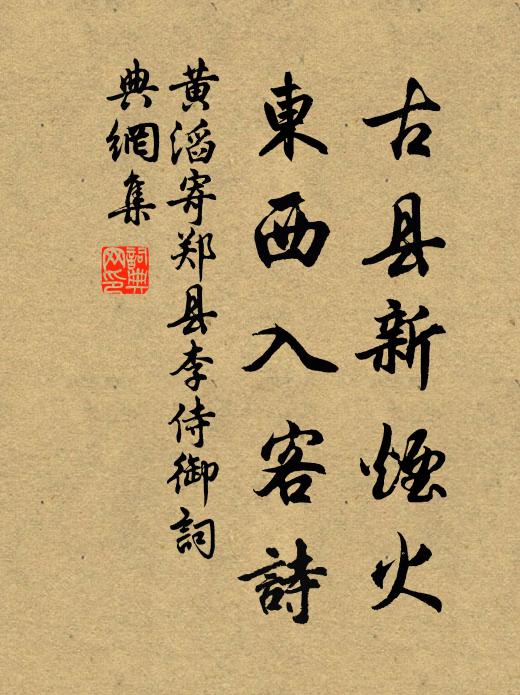 古县新煙火
東西入客詩
黃滔寄郑县李侍御詞
典網集
詞典
网印